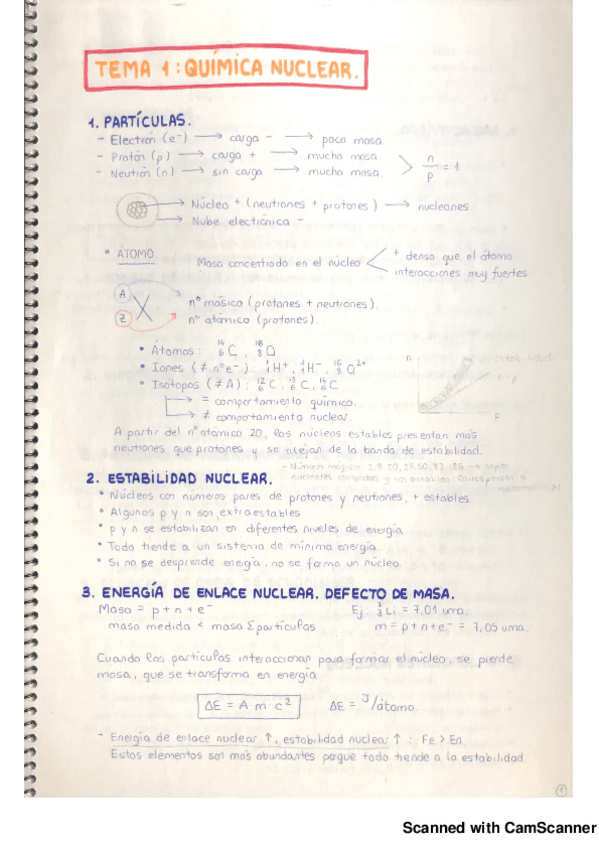 TEMA 1: QUÍMICA NUCLEAR.
1. PARTÍCULAS.
- Electrón (e⁻) → carga - → poca masa.
- Protón (p) → carga + → mucha masa.
- Neutrón (n) → sin carga → mucha masa.
n/p = 1
Núcleo + (neutrones + protones) → nucleones.
Nube electrónica -
* ÁTOMO.
Masa concentrada en el núcleo < + denso que el átomo.
interacciones muy fuertes.
A X nº másico (protones + neutrones).
Z nº atómico (protones).
• Átomos: ¹⁴₆C, ¹⁶₈O
• Iones (≠ nºe⁻): ¹₁H⁺, ¹₁H⁻, ¹⁶₈O²⁺
• Isótopos (≠ A): ¹²₆C, ¹³₆C, ¹⁴₆C
→ = comportamiento químico.
→ ≠ comportamiento nuclear.
n
estabilidad
n=p
p
A partir del nº atómico 20, los núcleos estables presentan más
neutrones que protones y se alejan de la banda de estabilidad.
2. ESTABILIDAD NUCLEAR.
- Números mágicos: 2, 8, 20, 28, 50, 82, 126 → capas
nucleares completas y son estables.
• Núcleos con números pares de protones y neutrones, + estables
• Algunos p y n son extraestables
• p y n se estabilizan en diferentes niveles de energía
• Todo tiende a un sistema de mínima energía.
• Si no se desprende energía, no se forma un núcleo.
3. ENERGÍA DE ENLACE NUCLEAR. DEFECTO DE MASA.
Masa = p + n + e⁻ Ej. ⁷₃Li = 7,01 uma.
masa medida < masa Σpartículas m = p + n + e⁻ = 7,05 uma.
Cuando las partículas interaccionan para formar el núcleo, se pierde
masa, que se transforma en energía
ΔE = Δm·c² ΔE = J/átomo.
- Energía de enlace nuclear ↑, estabilidad nuclear ↑ : Fe > En.
Estos elementos son más abundantes porque todo tiende a la estabilidad.
1
Scanned with CamScanner